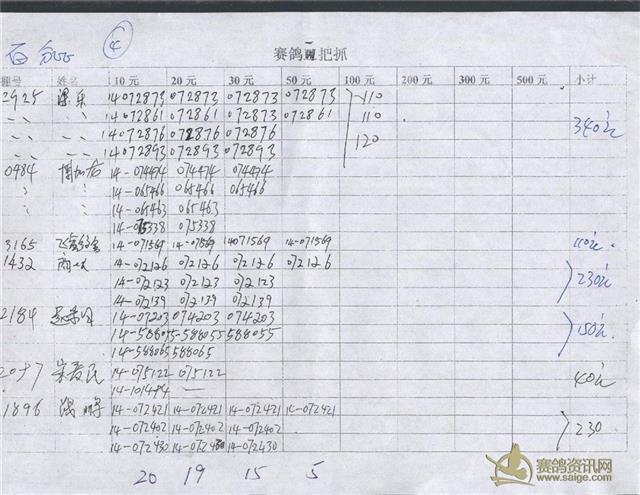 百 ④
赛鸽 把抓
棚号 姓名 10元 20元 30元 50元 100元 200元 300元 500元 小计
2925 14072873 072873 072873 072873 110
、、 、、 14072861 072861 072873 072861 110
、、 、、 14072876 072876 072876 120 340元
、、 、、 14072893 072893 072893
0984 14-074474 074474 074474
14-065466 065466 065466
14-065463 065463
14-075338 075338
3165 14-071569 14-071569 14071569 14-071569 110元
1432 14-072126 072126 072126 072126
14-072123 072123 072123 230元
14-072139 072139 072139
2184 14-07203 074203 074203
14-588055 588055 588055 150元
14-588065 588065
14-075122 075122 40元
14-101494 —
1896 14-072421 14-072421 14-072421 14-072421
14-072402 14-072402 14-072402 230
14-072430 14-072430 14-072430
20 19 15 5
赛鸽资讯网
www.saige.com